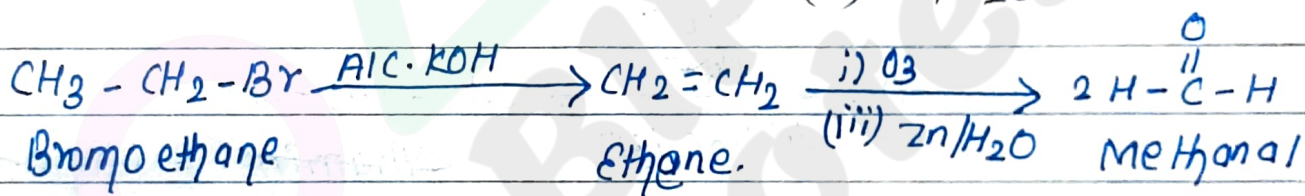 O
CH3 - CH2 - Br Alc. KOH → CH2 = CH2 i) O3 (iii) Zn/H2O → 2 H - C - H
Bromoethane Ethene. Methanal